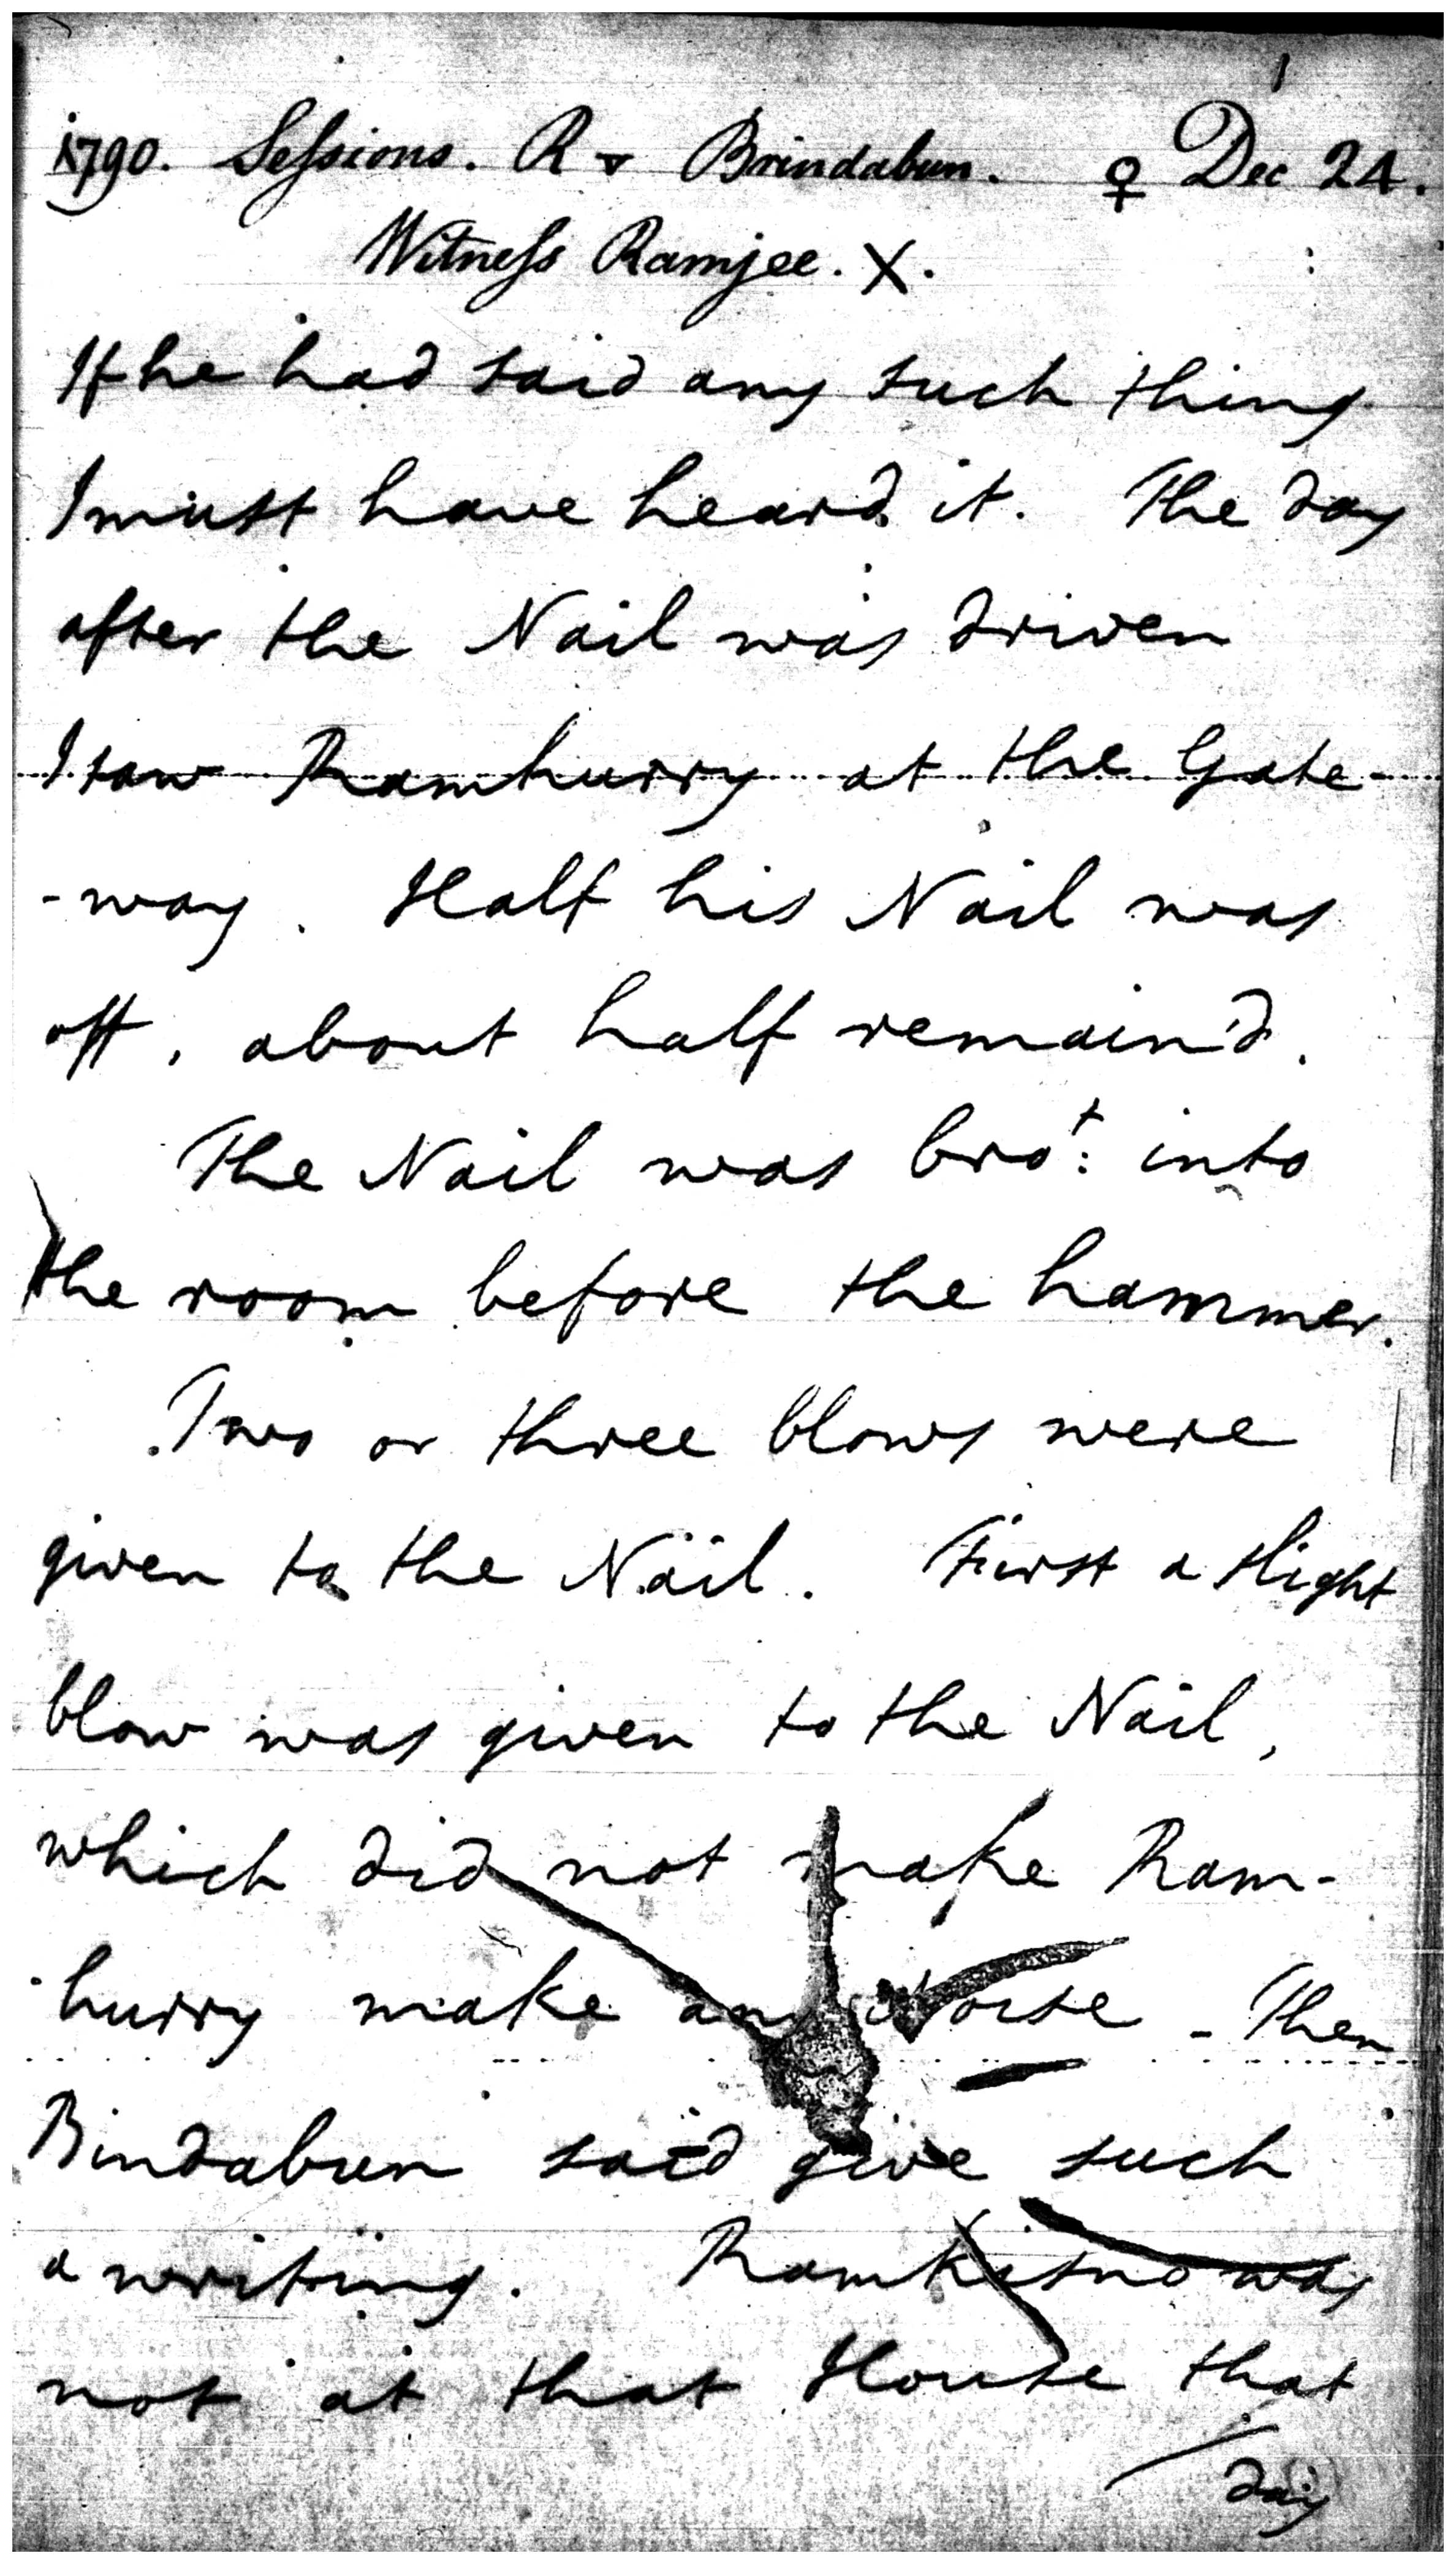 1790. Sessions. R v Brindabun. ♀ Dec 24.
Witness Ramjee. X.
If he had said any such thing
I must have heard it. The day
after the Nail was driven
I saw Ramhurry at the Gate-
-way. Half his Nail was
off, about half remain'd.
The Nail was bro:t into
the room before the hammer.
Two or three blows were
given to the Nail. First a slight
blow was given to the Nail,
which did not make Ram-
hurry make any Noise - Then
Bindabun said give such
a writing. Ramkisno was
not at that House that
day